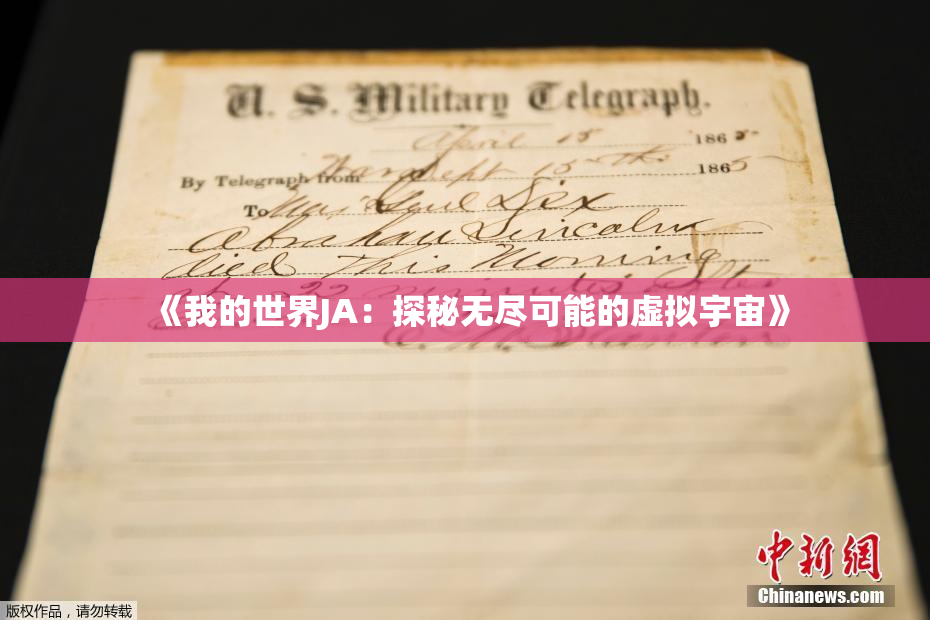 U. S. Military Telegraph.
April 15 1865
By Telegraph from War Dept 15th 1865
To Maj Genl Dix
Abraham Lincoln
died This Morning
at 22 minutes after
《我的世界JA：探秘无尽可能的虚拟宇宙》
中新网
Chinanews.com
版权作品，请勿转载